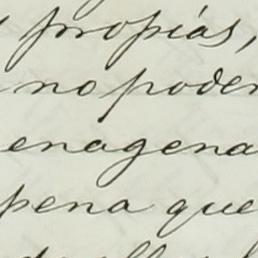 propiás,
no poder
enagena
pena que